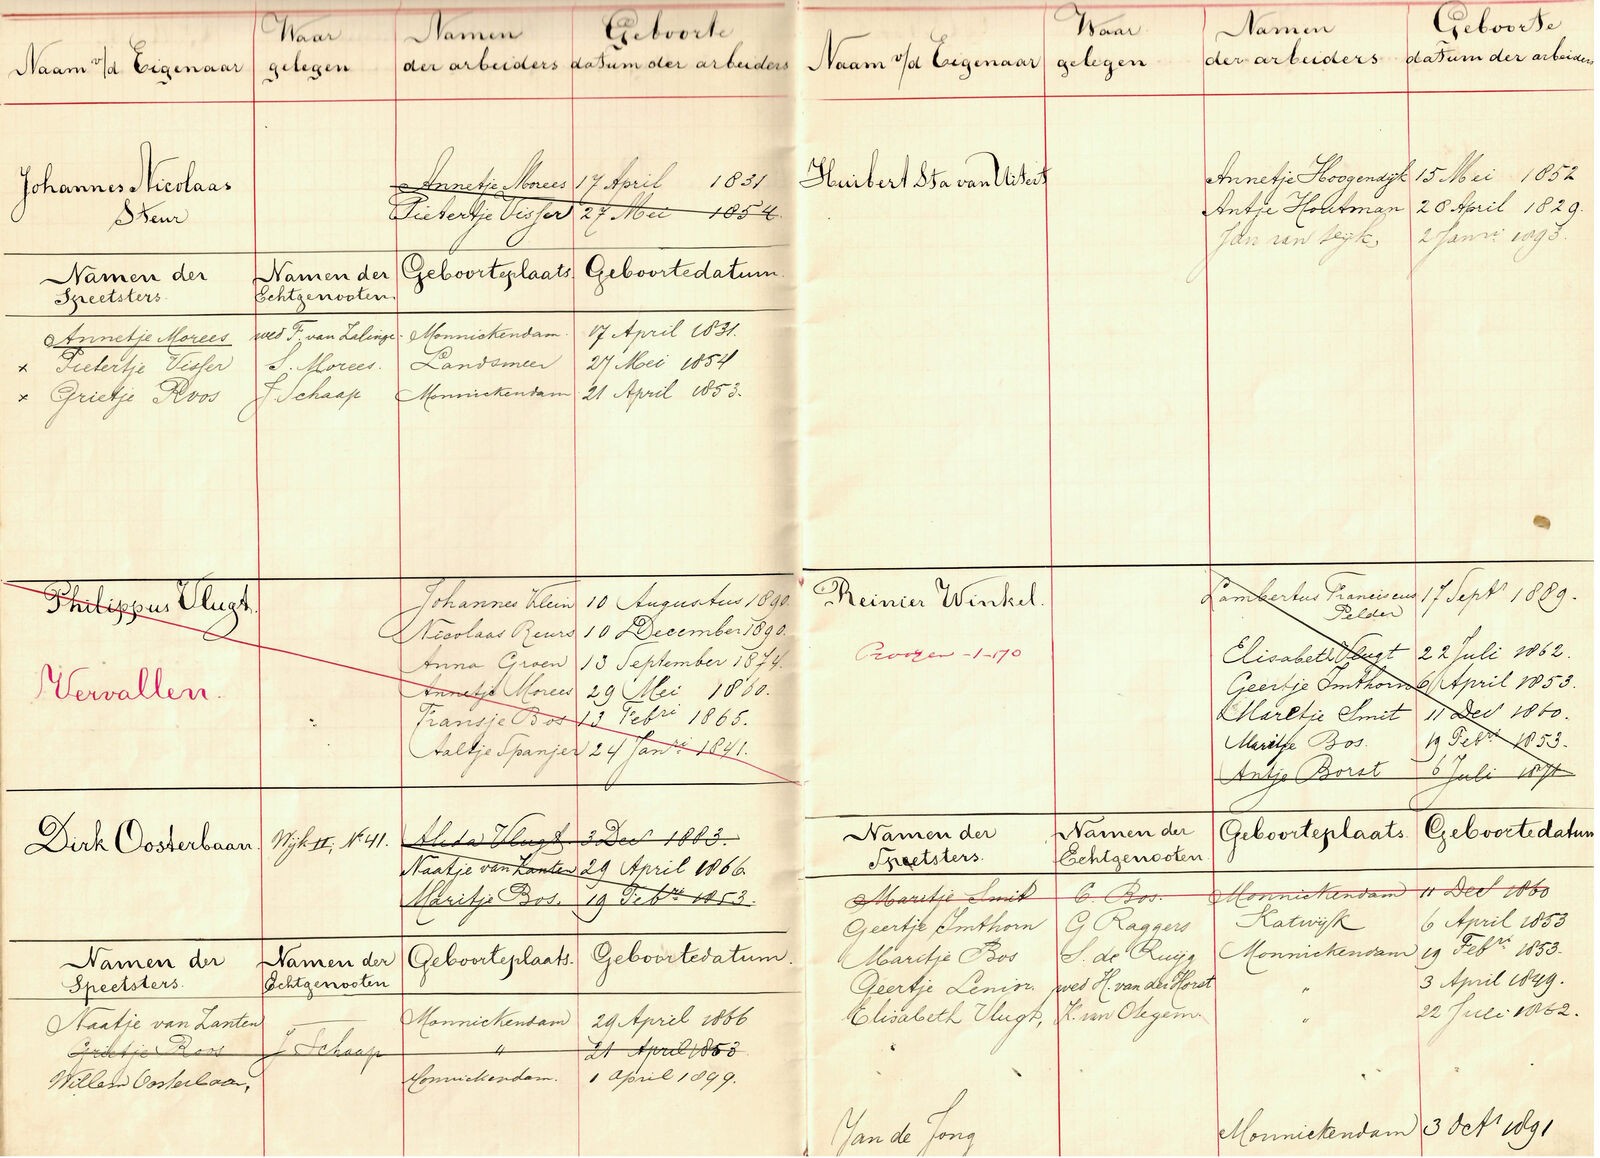 Naam v/d Eigenaar Waar gelegen Namen der arbeiders Geboorte datum der arbeiders
Johannes Nicolaas Steur
Annetje Morees 17 April 1831
Pietertje Visser 27 Mei 1854
Namen der Speetsters. Namen der Echtgenooten. Geboorteplaats. Geboortedatum.
Annetje Morees wed F. van Zalinge Monnickendam. 17 April 1831.
x Pietertje Visser S. Morees. Landsmeer 27 Mei 1854
x Grietje Roos J Schaap Monnickendam 21 April 1853.
Philippus Vlugt.
Vervallen.
Johannes Klein 10 Augustus 1890.
Nicolaas Reurs 10 December 1890.
Anna Groen 13 September 1874.
Annetje Morees 29 Mei 1860.
Fransje Bos 13 Febri 1865.
Aaltje Spanjer 24 Janri 1841.
Dirk Oosterbaan. Wijk II, No 41. Aleda Vlugt. 3 Dec 1883.
Naatje van Zanten 29 April 1866.
Maritje Bos. 19 Febri 1853.
Namen der Speetsters. Namen der Echtgenooten Geboorteplaats. Geboortedatum.
Naatje van Zanten Monnickendam 29 April 1866
Grietje Roos J Schaap " 21 April 1853
Willem Oosterbaan, Monnickendam. 1 April 1899.
Naam v/d Eigenaar Waar gelegen Namen der arbeiders Geboorte datum der arbeiders
Huibert Sta van Uiter Annetje Hoogendijk 15 Mei 1852
Antje Houtman 28 April 1829.
Jan van 2 Janri 1893.
Reinier Winkel. Lambertus Franciscus Pelder 17 Sept 1889.
-1-170
Elisabeth Vlugt 22 Juli 1862.
Geertje Imthorn 6 April 1853.
Maretje Smit 11 Dec 1860.
Maritje Bos. 19 Febri 1853.
Antje Borst 6 Juli 1871
Namen der Speetsters. Namen der Echtgenooten. Geboorteplaats. Geboortedatum
Maretje Smit C. Bos. Monnickendam 11 Dec 1860
Geertje Imthorn G Raggers Katwijk 6 April 1853
Maritje Bos S. de Ruijg Monnickendam 19 Febri 1853.
Geertje wed H. van der Horst " 3 April 1849.
Elisabeth Vlugt, K. van Olegem. " 22 Juli 1862.
Jan de Jong Monnickendam 3 Oct 1891